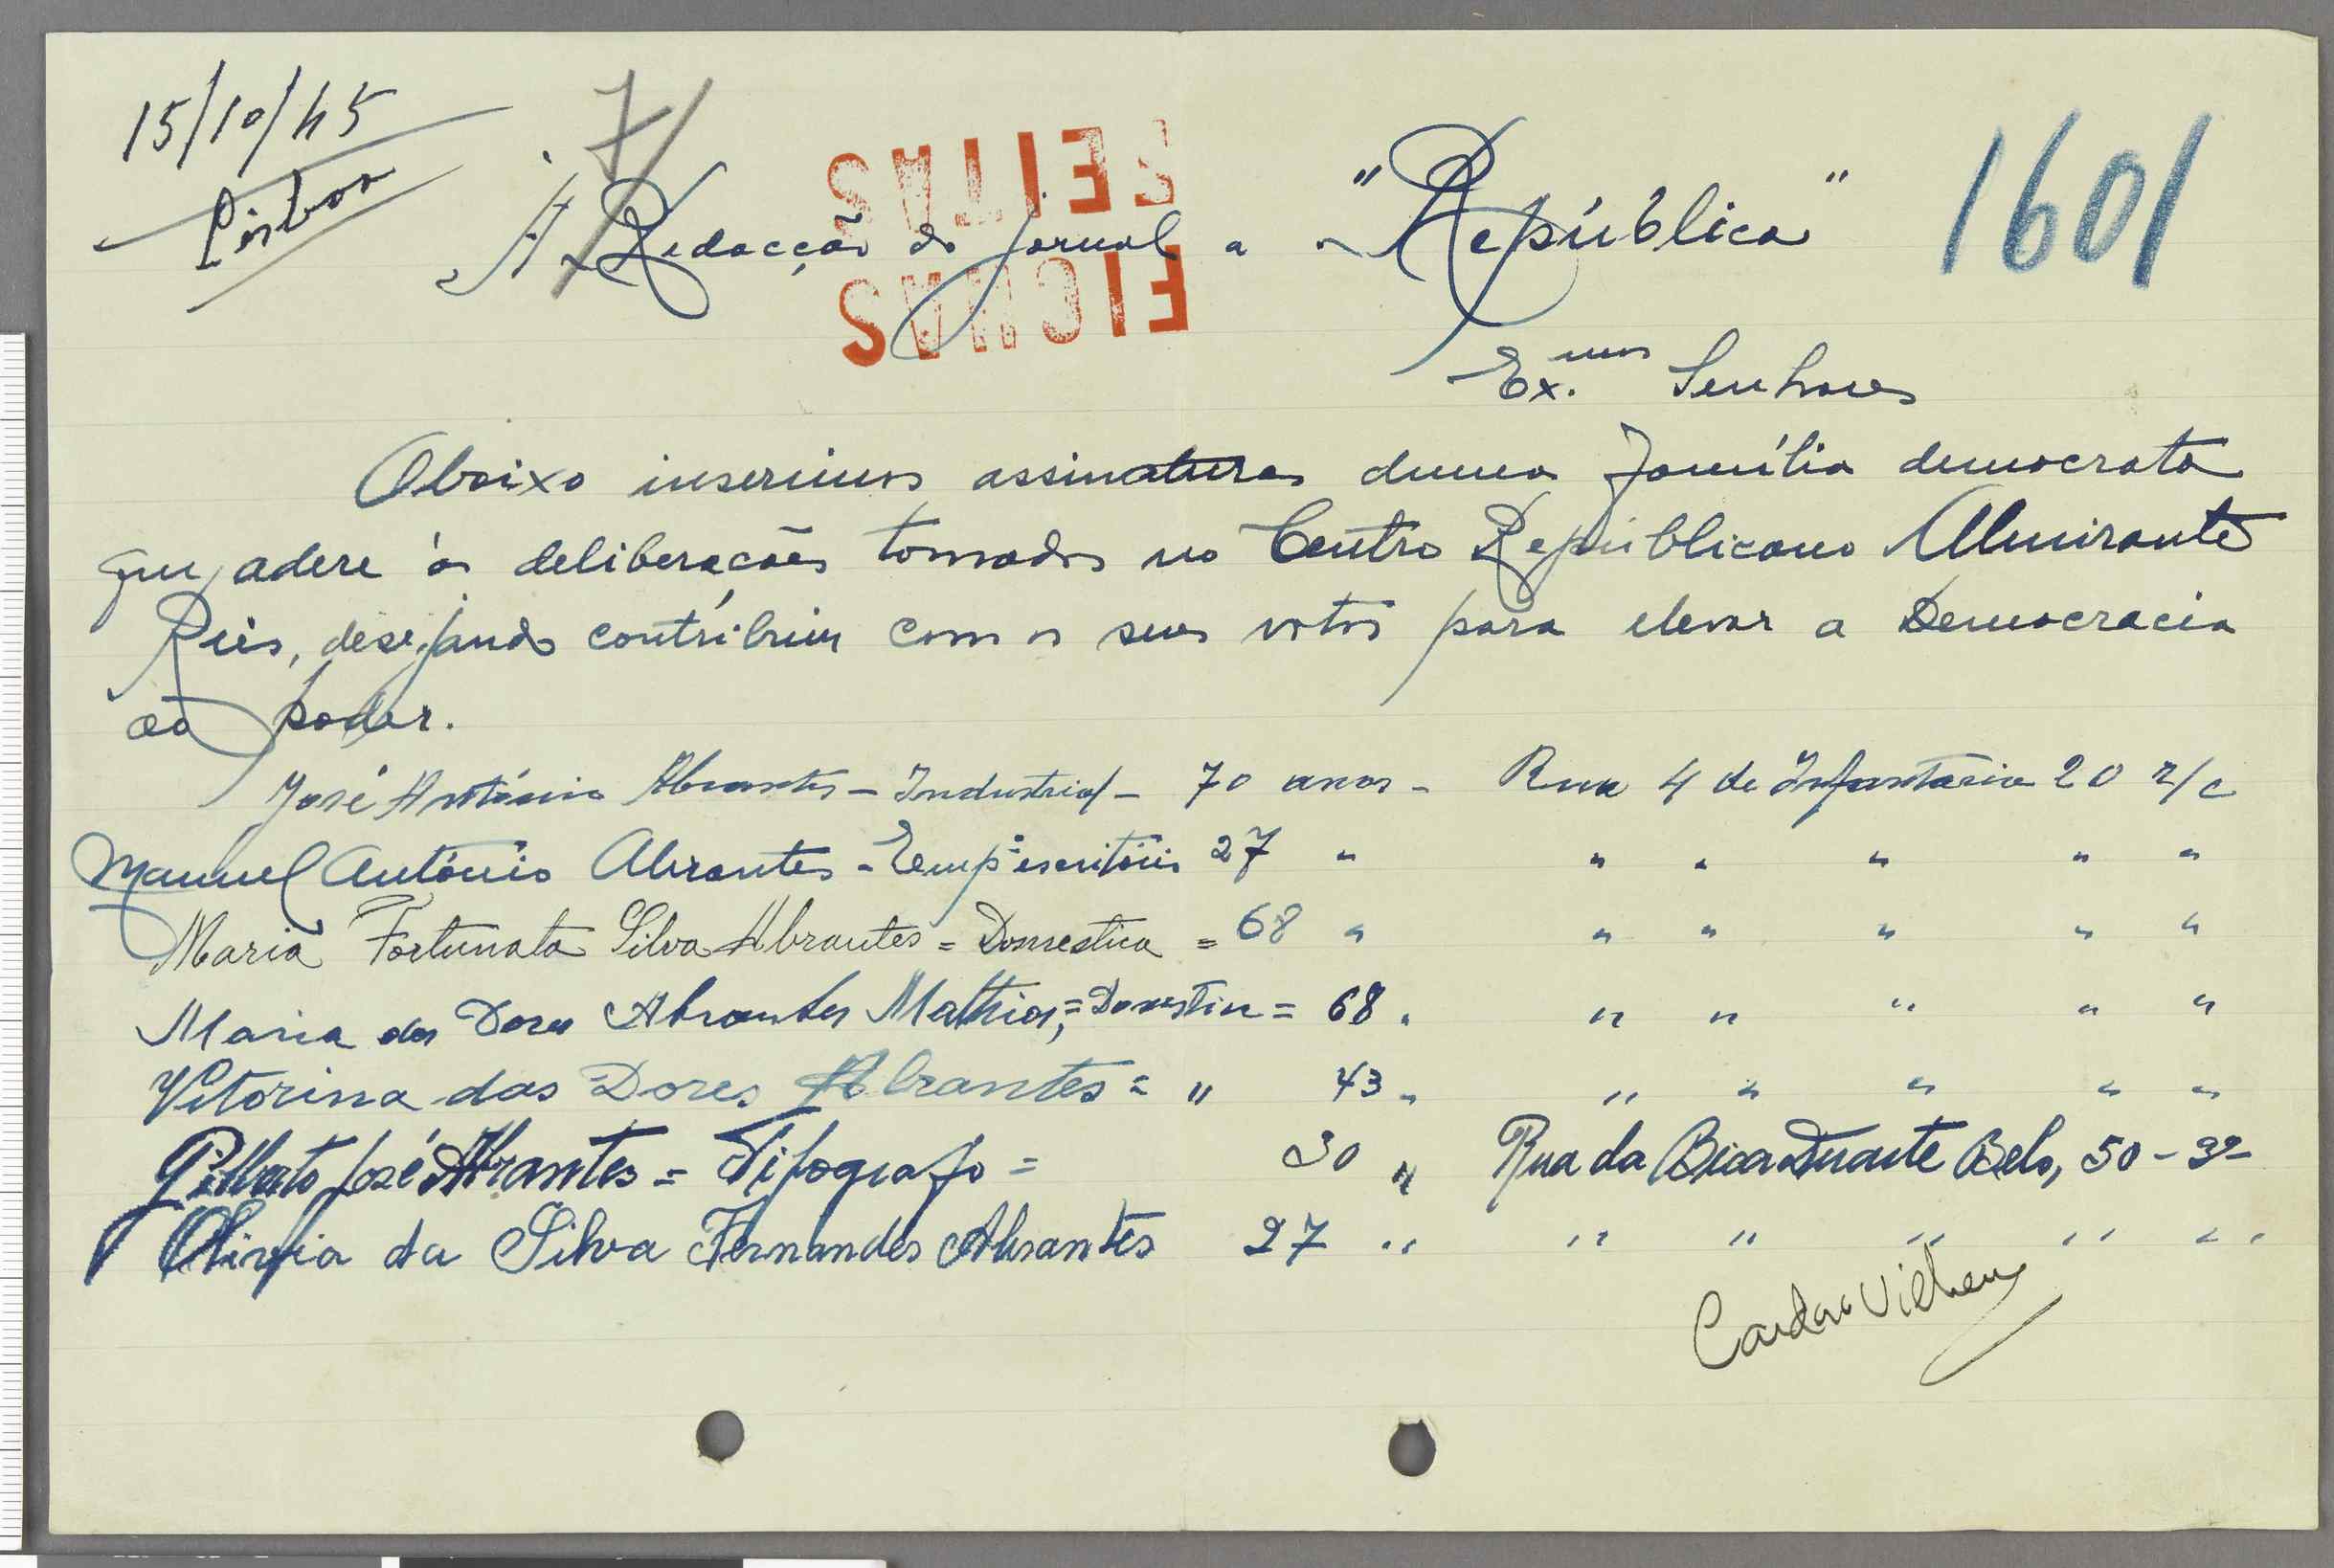 15/10/45
Lisboa
7
1601
À Redacção do jornal a "República"
FICHAS
FEITAS
Ex.mos Senhores
Abaixo inserimos assinaturas duma família democrata
que adere ás deliberações tomadas no Centro Repúblicano Almirante
Reis, desejando contribuir com os seus votos para elevar a Democracia
ao poder.
José António Abrantes - Industrial - 70 anos - Rua 4 de Infantaria 20 r/c
Manuel António Abrantes - Emp. escritório 27 " " " " " "
Maria Fortunata Silva Abrantes = Domestica = 68 " " " " " "
Maria das Dores Abrantes Mathias, = Domestica = 68 " " " " " "
Vitorina das Dores Abrantes = " 43 " " " " " "
Gilberto José Abrantes = Tipografo = 30 " Rua da Bica Duarte Belo, 50-3º
Olivia da Silva Fernandes Abrantes 27 " " " " " "